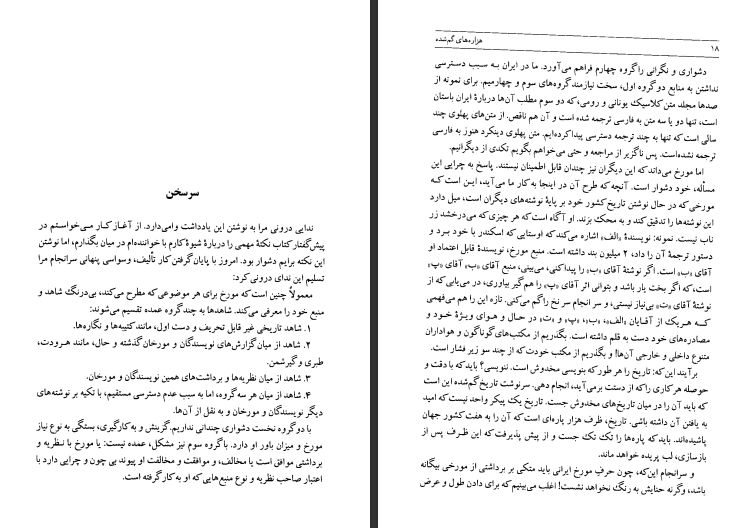 سرسخن
ندایی درونی مرا به نوشتن این یادداشت وامی‌دارد. از آغاز کار می‌خواستم در
پیش‌گفتار کتاب نکتهٔ مهمی را دربارهٔ شیوهٔ کارم با خواننده‌ام در میان بگذارم، اما نوشتن
این نکته برایم دشوار بود. امروز با پایان گرفتن کار تألیف، وسواسی پنهانی سرانجام مرا
تسلیم این ندای درونی کرد:
معمولاً چنین است که مورخ برای هر موضوعی که مطرح می‌کند، بی‌درنگ شاهد و
منبع خود را معرفی می‌کند. شاهدها به چند گروه عمده تقسیم می‌شوند:
۱. شاهد تاریخی غیر قابل تحریف و دست اول، مانند کتیبه‌ها و نگاره‌ها.
۲. شاهد از میان گزارش‌های نویسندگان و مورخان گذشته و حال، مانند هرودت،
طبری و گیرشمن.
۳. شاهد از میان نظریه‌ها و برداشت‌های همین نویسندگان و مورخان.
۴. شاهد از میان هر سه گروه، اما به سبب عدم دسترسی مستقیم، با تکیه بر نوشته‌های
دیگر نویسندگان و مورخان و به نقل از آن‌ها.
با دو گروه نخست دشواری چندانی نداریم. گزینش و به‌کارگیری، بستگی به نوع نیاز
مورخ و میزان باور او دارد. با گروه سوم نیز مشکل، عمده نیست: یا مورخ با نظریه و
برداشتی موافق است یا مخالف، و موافقت و مخالفت او پیوند بی چون و چرایی دارد با
اعتبار صاحب نظریه و نوع منبع‌هایی که او به کار گرفته است.
۱۸ هزاره‌های گم‌شده
دشواری و نگرانی را گروه چهارم فراهم می‌آورد. ما در ایران به سبب دسترسی
نداشتن به منابع دو گروه اول، سخت نیازمند گروه‌های سوم و چهارمیم. برای نمونه از
صدها مجلد متن کلاسیک یونانی و رومی، که دو سوم مطلب آن‌ها دربارهٔ ایران باستان
است، تنها دو یا سه متن به فارسی ترجمه شده است و آن هم ناقص. از متن‌های پهلوی چند
سالی است که تنها به چند ترجمه دسترسی پیدا کرده‌ایم. متن پهلوی دینکرد هنوز به فارسی
ترجمه نشده‌است. پس ناگزیر از مراجعه و حتی می‌خواهم بگویم تکدی از دیگرانیم.
اما مورخ می‌داند که این دیگران نیز چندان قابل اطمینان نیستند. پاسخ به چرایی این
مسأله، خود دشوار است. آنچه که طرح آن در اینجا به کار ما می‌آید، این است که
مورخی که در حال نوشتن تاریخ کشور خود بر پایهٔ نوشته‌های دیگران است، میل دارد
این نوشته‌ها را تدقیق کند و به محک بزند. او آگاه است که هر چیزی که می‌درخشد زر
ناب نیست. نمونه: نویسندهٔ «الف» اشاره می‌کند که اوستایی که اسکندر با خود برد و
دستور ترجمهٔ آن را داد، ۲ میلیون بند داشته است. منبع مورخ، نویسندهٔ قابل اعتماد او
آقای «ب» است. اگر نوشتهٔ آقای «ب» را پیدا کنی، می‌بینی، منبع آقای «ب»، آقای «پ»
است، که اگر بخت یار باشد و بتوانی اثر آقای «پ» را هم گیر بیاوری، در می‌یابی که از
نوشتهٔ آقای «ت» بی‌نیاز نیستی، و سر انجام سر نخ را گم می‌کنی. تازه این را هم می‌فهمی
که هر یک از آقایان «الف»، «ب»، «پ» و «ت» در حال و هوای ویژهٔ خود و
مصادره‌های خود دست به قلم داشته است. بگذریم از مکتب‌های گوناگون و هواداران
متنوع داخلی و خارجی آن‌ها! و بگذریم از مکتب خودت که از چند سو زیر فشار است.
برآیند این که: تاریخ را هر طور که بنویسی مخدوش است. ننویسی؟ باید که با دقت و
حوصله هر کاری را که از دستت برمی‌آید، انجام دهی. سرنوشت تاریخ گم‌شده این است
که باید آن را در میان تاریخ‌های مخدوش جست. تاریخ یک پیکر واحد نیست که امید
به یافتن آن داشته باشی. تاریخ، ظرف هزار پاره‌ای است که آن را به هفت کشور جهان
پاشیده‌اند. باید که پاره‌ها را تک تک جست و از پیش پذیرفت که این ظرف پس از
بازسازی، لب پریده خواهد ماند.
و سرانجام این‌که، چون حرفِ مورخ ایرانی باید متکی بر برداشتی از مورخی بیگانه
باشد، وگرنه حنایش به رنگ نخواهد نشست! اغلب می‌بینیم که برای دادن طول و عرض